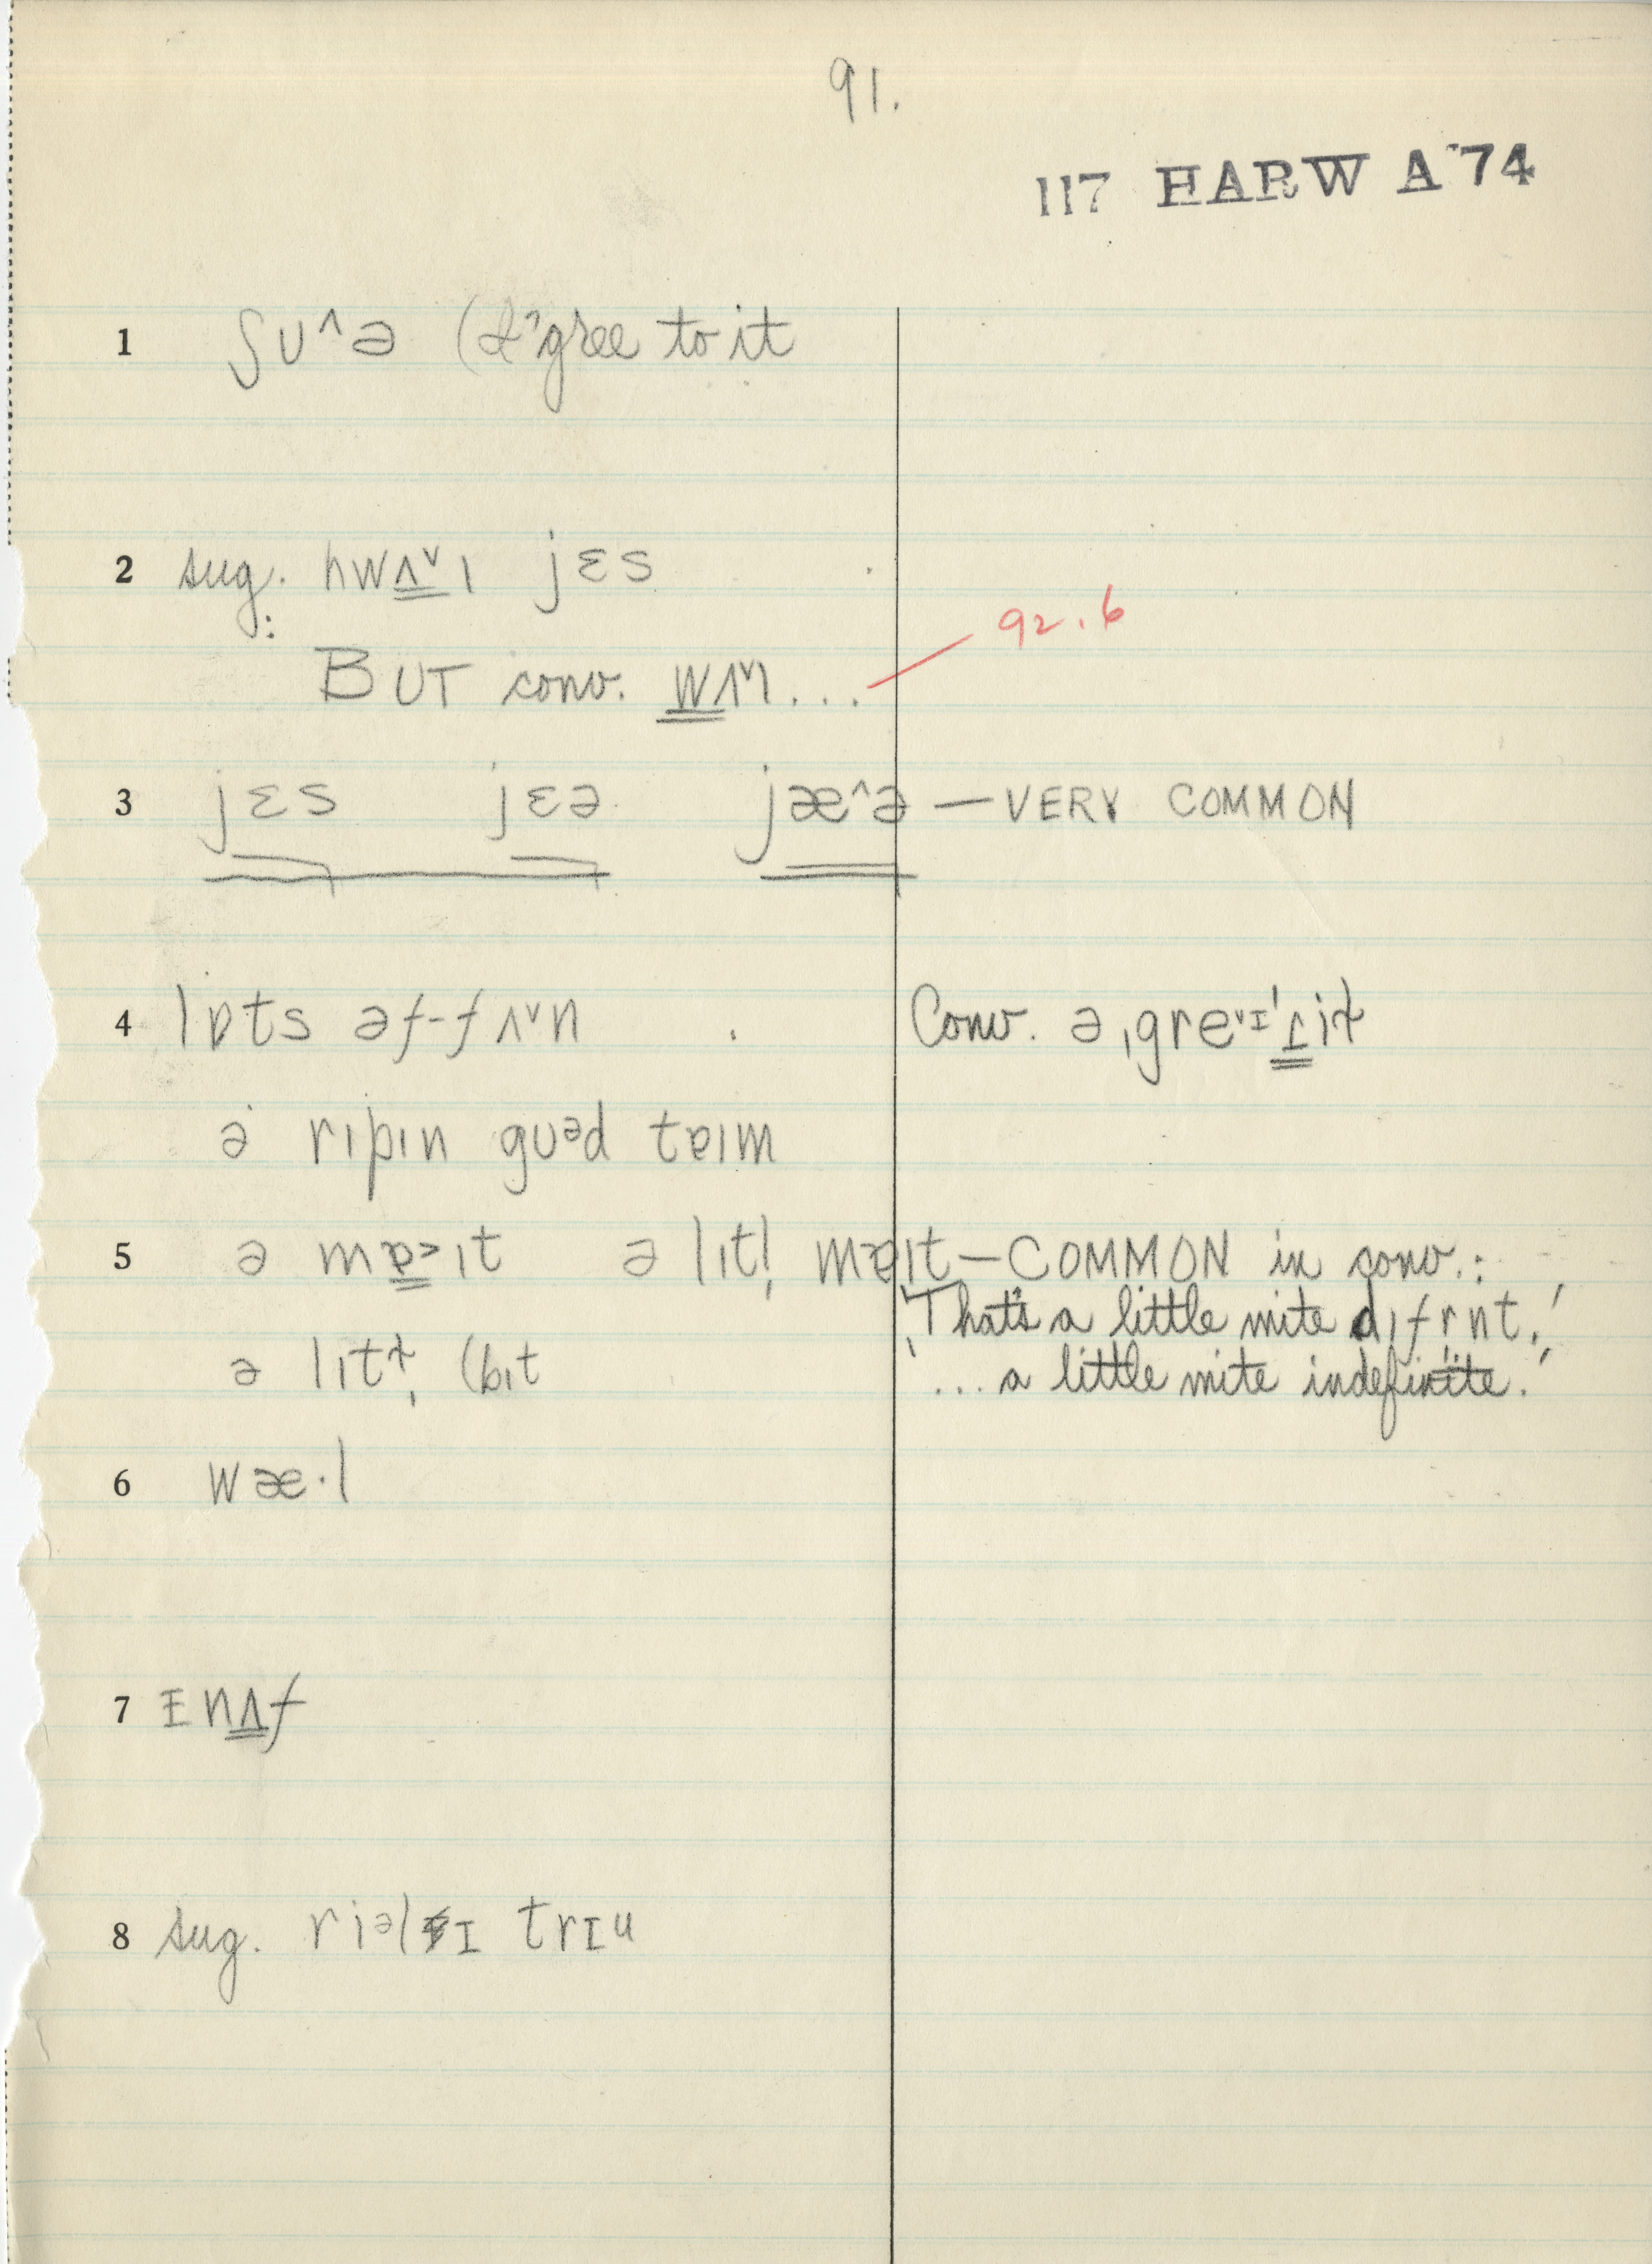 91.
117 HARW A 74
1 ʃʊ^ə (I'd 'gree to it
2 sug. hwʌ̳ˇɪ jɛs
: BUT conv. w̳ʌˇɪ...
92.6
3 jɛs jɛə jæ^ə — VERY COMMON
4 lɒts əf-fʌˇn Conv. ə ˌgreˇɪ
ə rɪpɪn gʊᵊd tɐɪm
5 ə mɐ̳˃ɪt ə lɪtl̩ mɐɪt — COMMON in conv.:
'That's a little mite dɪfrnt.'
ə lɪtɫ̩ (bɪt '... a little mite indefinite.'
6 wæ·l
7 ɪnʌ̳f
8 sug. riəlɪ trɪu